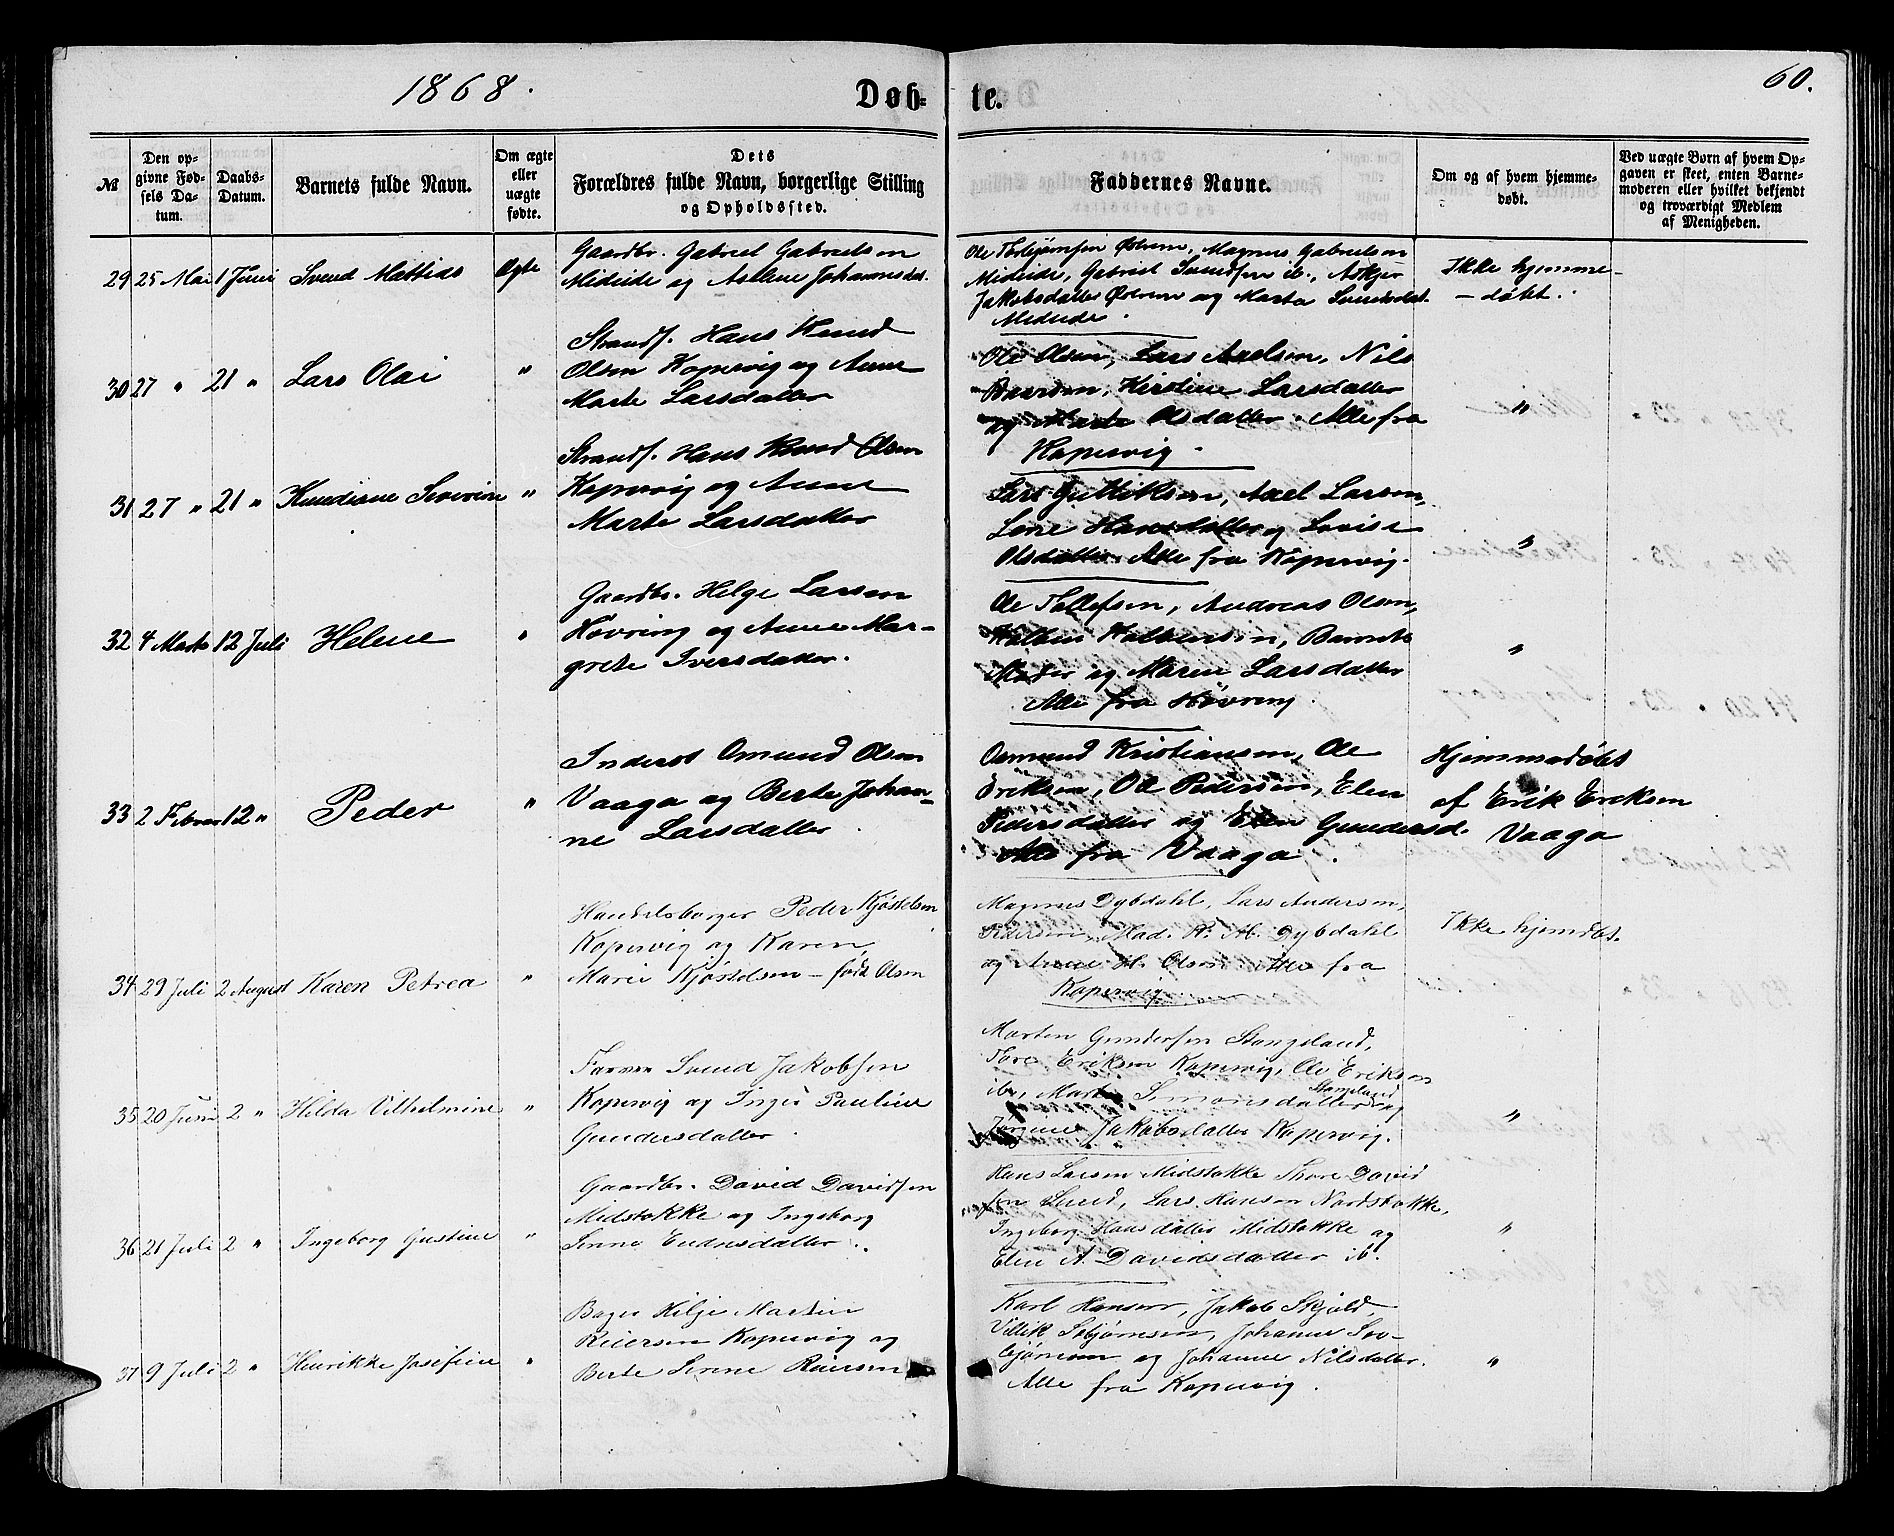 1868.
Døb-
te.
60.
№
Den op-
givne Fød-
sels Da-
tum.
Daabs-
Datum.
Barnets fulde Navn.
Om ægte
eller
uægte
fødte.
Dets
Forældres fulde Navn, borgerlige Stilling
og Opholdssted.
Faddernes Navne.
Om og af hvem hjemme-
døbt.
Ved uægte Børn af hvem Op-
gaven er skeet, enten Barne-
moderen eller hvilket bekjendt
og troværdigt Medlem
af Menigheden.
29 25 Mai 1 Juni Svend Mattias Ægte
Gaardbr. Gabriel Gabrielsen
Midtide og Aslene Johannesdat.
Ole Thorbjørnsen Østrem, Magnus Gabrielsen
Midtide, Gabriel Svendsen ib., Askjer
Jakobsdatter Østrem og Marta Svendsdat.
Midtide.
Ikke hjemme-
- døbt.
30 27 " 21 " Lars Olai "
Strands. Hans Knud
Olsen Kopervig og Anne
Marte Larsdatter
Ole Olsen, Lars Axelsen, Nils
Baardsen, Kirstine Larsdatter
og Marte Olsdatter. Alle fra
Kopervig.
"
31 27 " 21 " Knudiane Severine "
Strands. Hans Knud Olsen
Kopervig og Anne
Marte Larsdatter
Lars Guttiksen, Axel Larsen,
Lene Hansdatter og Lovise
Olsdatter. Alle fra Kopervig.
"
32 4 Marts 12 Juli Helene "
Gaardbr. Helge Larsen
Høvring og Anne Mar-
grete Iversdatter.
Ole Tollefsen, Andreas Olsen,
Halvor Halvorsen, Barnets
Moder og Maren Larsdatter
Alle fra Høvring.
"
33 2 Februar 12 " Peder "
Inderst Omund Olsen
Vaaga og Berte Johan-
ne Larsdatter.
Osmund Kristiansen, Ole
Eriksen, Ole Pedersen, Elen
Pedersdatter og Elen Gundersd.
Alle fra Vaaga.
Hjemmedøbt
af Erik Eriksen
Vaaga
34 29 Juli 2 August Karen Petrea "
Handelsborger Peder Kjøstelsen
Kopervig og Karen
Marie Kjøstelsen - født Olsen
Magnus Dybdahl, Lars Andersen,
Pedersen, Mad. K. M. Dybdahl
og Anne H. Olsen. Alle fra
Kopervig
Ikke hjemdbt.
35 20 Juni 2 " Hilda Vilhelmine "
Farver Svend Jakobsen
Kopervig og Inger Pauline
Gundersdatter.
Morten Gundersen Stangeland,
Thore Eriksen Kopervig, Ole Eriksen
ib., Marte Simonsdatter Stangeland og
Jørgine Jakobsdatter Kopervig.
"
36 21 Juli 2 " Ingeborg Gustine "
Gaardbr. David Davidsen
Midstokke og Ingeborg
Serine Endresdatter.
Hans Larsen Midstokke Thore David
sen Lund, Lars Hansen Nordstokke,
Ingeborg Hansdatter Midstokke og
Elen A. Davidsdatter ib.
"
37 9 Juli 2 " Henrikke Josefine "
Bager Hilje Martin
Reiersen Kopervig og
Berte Serine Reiersen
Karl Hansen, Jakob Skjold,
Villik Sebjørnsen, Johanne Sev-
bjørnsen og Johanne Nilsdatter.
Alle fra Kopervig.
"